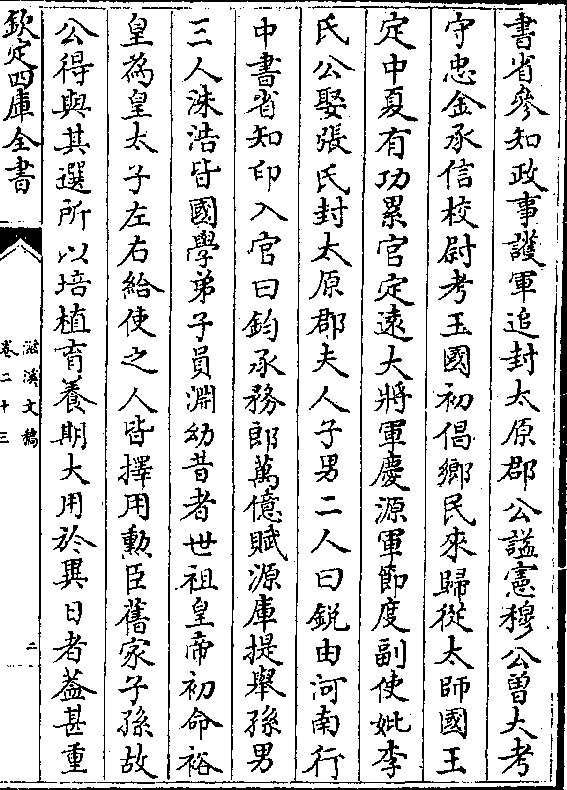 書省參知政事護軍追封太原郡公諡憲穆公曾大考
守忠金承信校尉考玉國初倡鄉民來歸從太師國王
定中夏有功累官定遠大將軍慶源軍節度副使妣李
氏公娶張氏封太原郡夫人子男二人曰鋭由河南行
中書省知印入官曰鈞承務郎萬億賦源庫提舉孫男
三人洙浩皆國學弟子員淵幼昔者世祖皇帝初命裕
皇為皇太子左右給使之人皆擇用勲臣舊家子孫故
公得與其選所以培植育養期大用於異日者葢甚重
欽定四庫全書
滋溪文稿
卷二十三
二